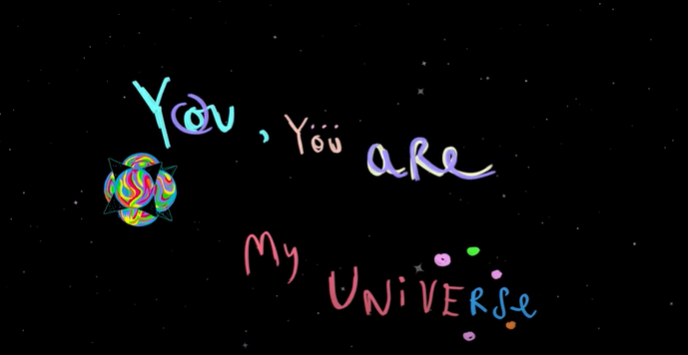 You, You are
My UNiVERSe